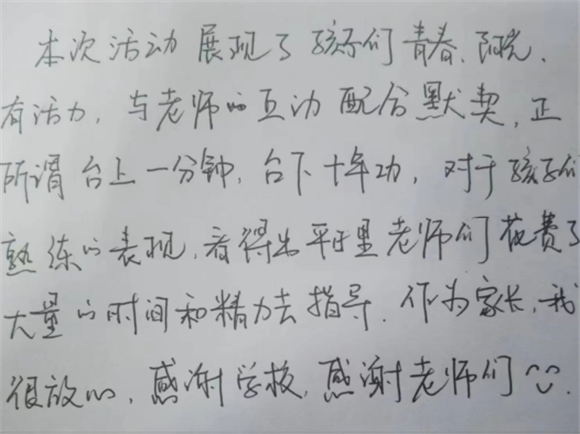 本次活动展现了孩子们青春、阳光、
有活力,与老师的互动配合默契,正
所谓台上一分钟,台下十年功,对于孩子们
熟练的表现,看得出平日里老师们花费了
大量的时间和精力去指导.作为家长,我
很放心,感谢学校,感谢老师们